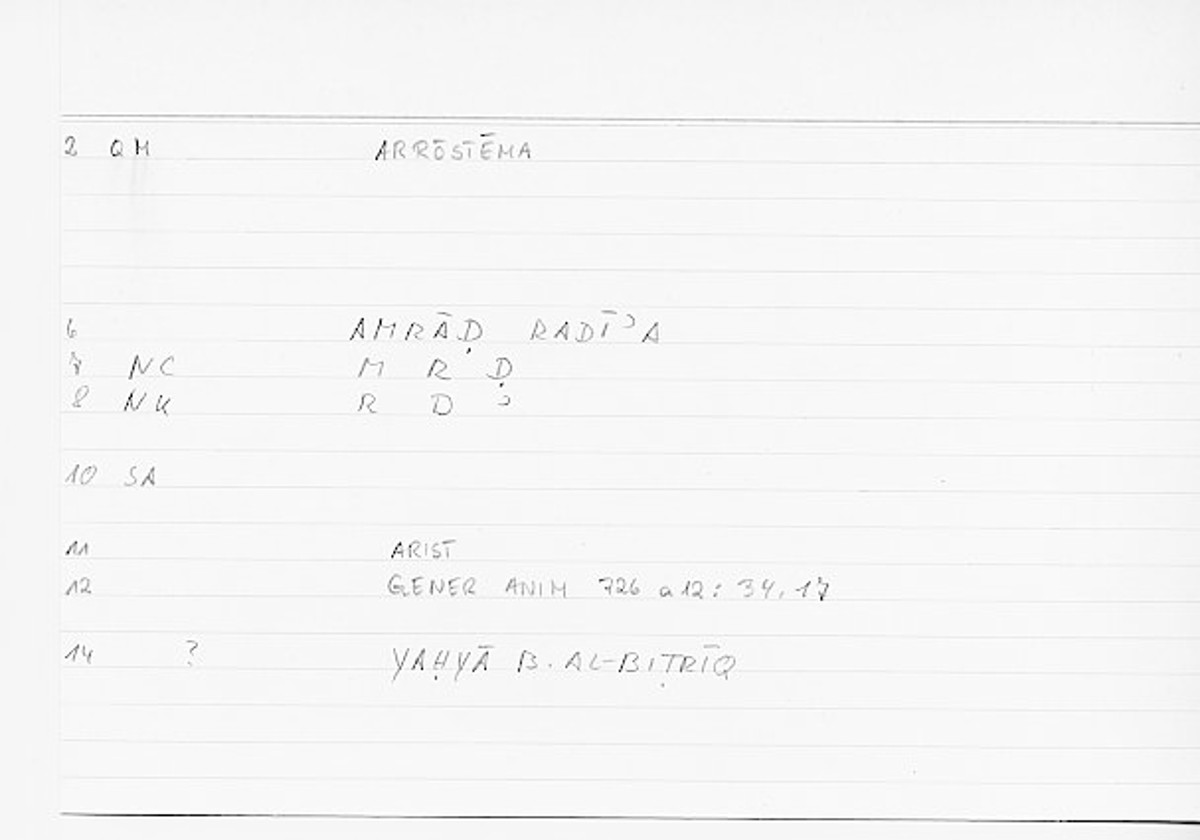 2 QM ARRŌSTĒMA
6 AMRĀḌ RADĪʾA
7 NC M R Ḍ
8 NK R D ʾ
10 SA
11 ARIST
12 GENER ANIM 726 a12: 34,17
14 ? YAḤYĀ B. AL-BIṬRĪQ